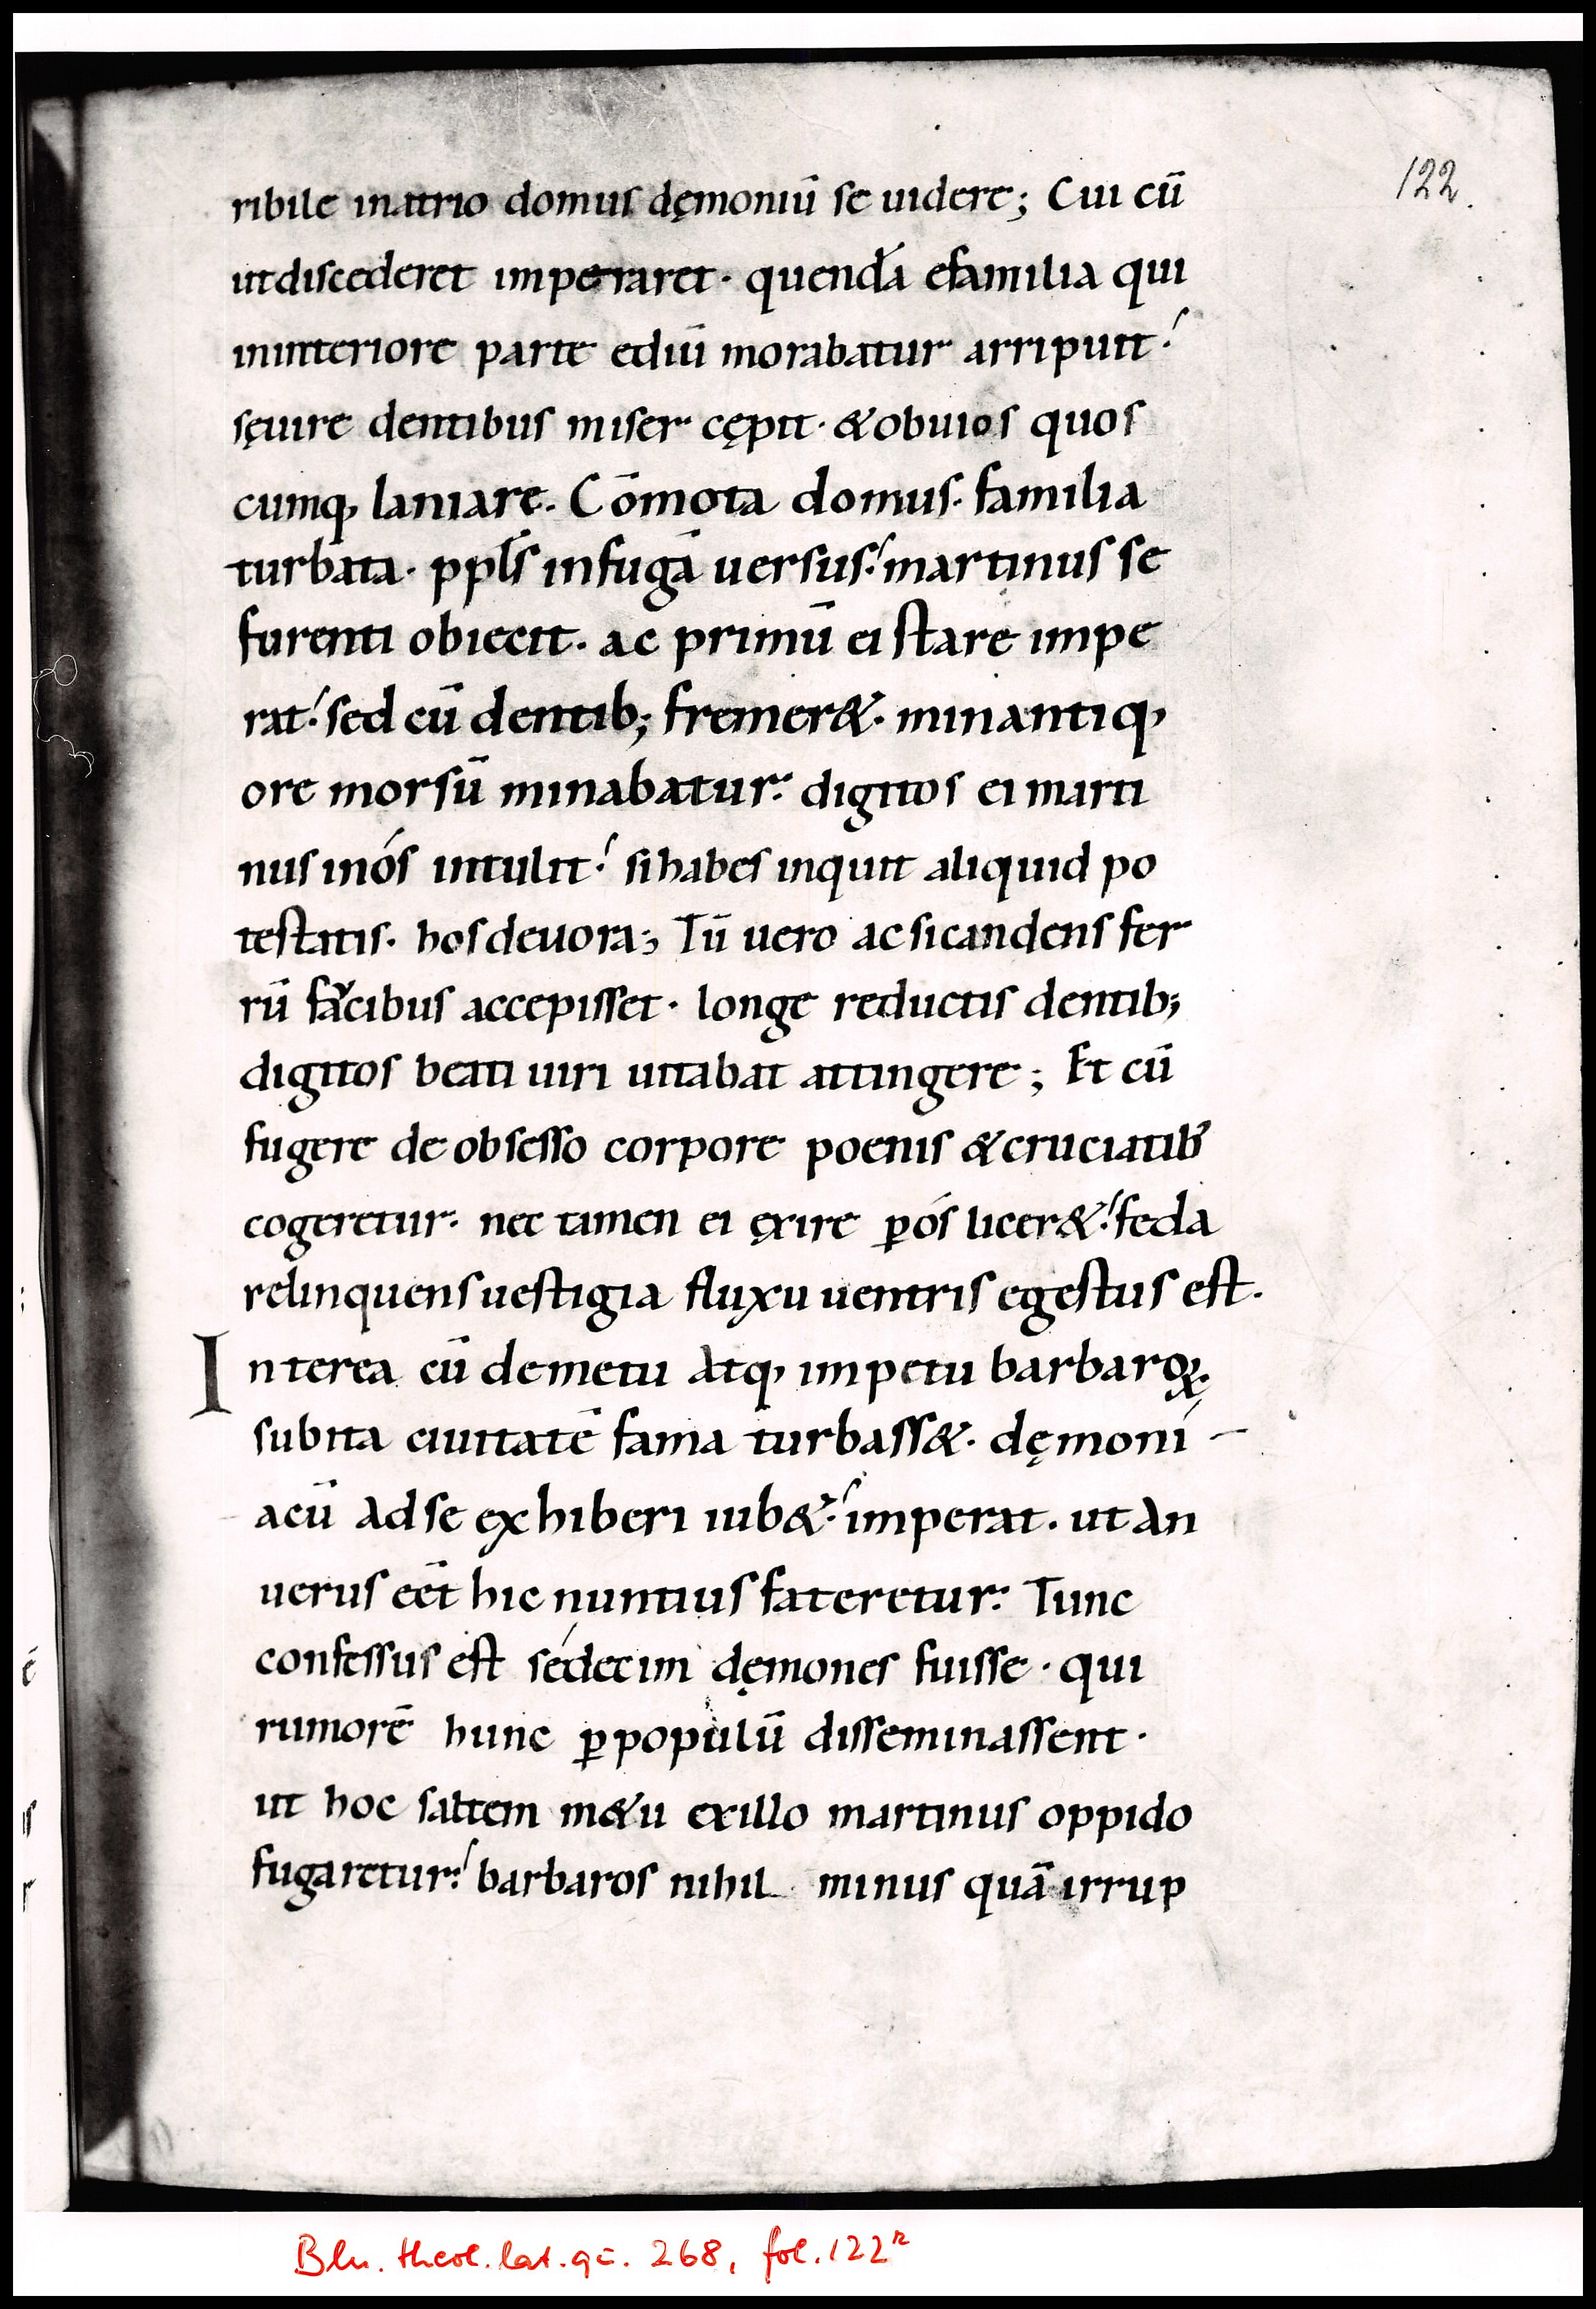 122.
ribile inatrio domus dęmoniū se uidere; Cui cū
utdiscederet imperaret· quendā efamilia qui
ininteriore parte ediū morabatur arripuit:
sęuire dentibus miser cępit· &obuios quos
cumq, laniare. Cōmota domus· familia
turbata· ppls̄ infugā uersus: martinus se
furenti obiecit· ac primū ei stare impe
rat: sed cū dentib; fremer&· minantiq,
ore morsū minabatur: digitos ei marti
nus inós intulit: sihabes inquit aliquid po
testatis· hosdeuora; Tū uero acsicandens fer
rū faucibus accepisset· longe reductis dentib;
digitos beati uiri uitabat attingere; Et cū
fugere de obsesso corpore poenis &cruciatib'
cogeretur· nec tamen ei ęxire ꝑós licer&: feda
relinquens uestigia fluxu uentris egestus est·
Interea cū demetu atq, impetu barbaroꝝ·
subita ciuitatē fama turbass&· dęmoni-
acū adse exhiberi iub&: imperat· ut an
uerus eēt hic nuntius fateretur: Tunc
confessus est sédecim dęmones fuisse· qui
rumorē hunc ꝑpopulū disseminassent·
ut hoc saltem m&u exillo martinus oppido
fugaretur: barbaros nihil minus quā irrup
Bln. theol. lat. qu. 268, fol. 122r